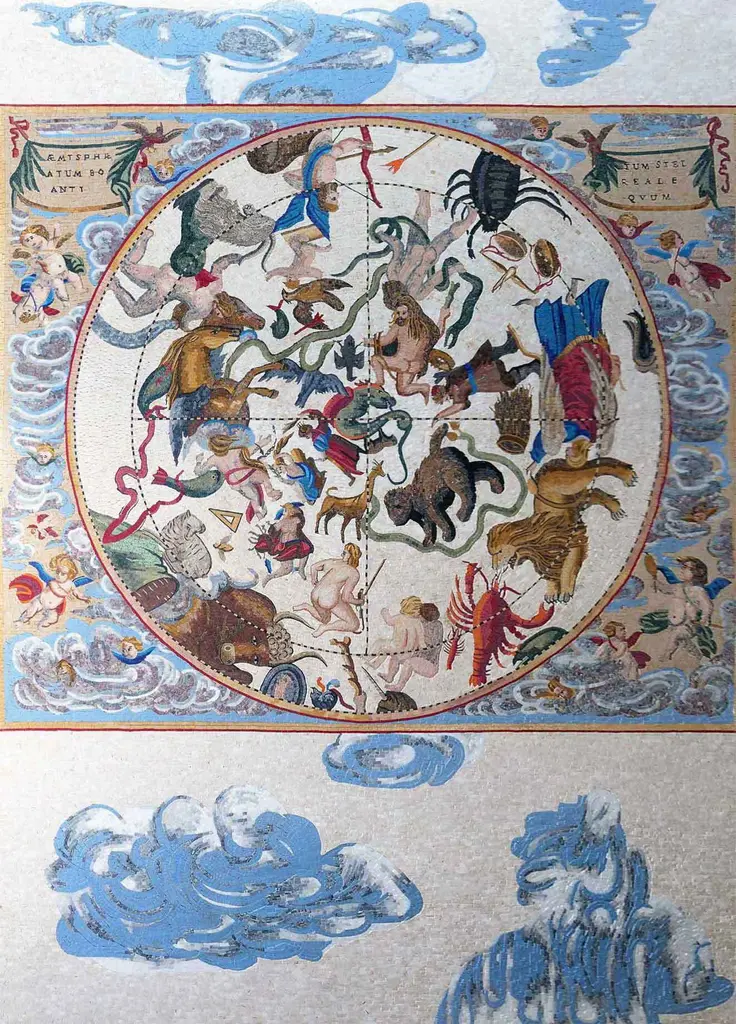 ÆMISPHR
ATUM BO
ANTI
IUM STEL
REALE
QVUM